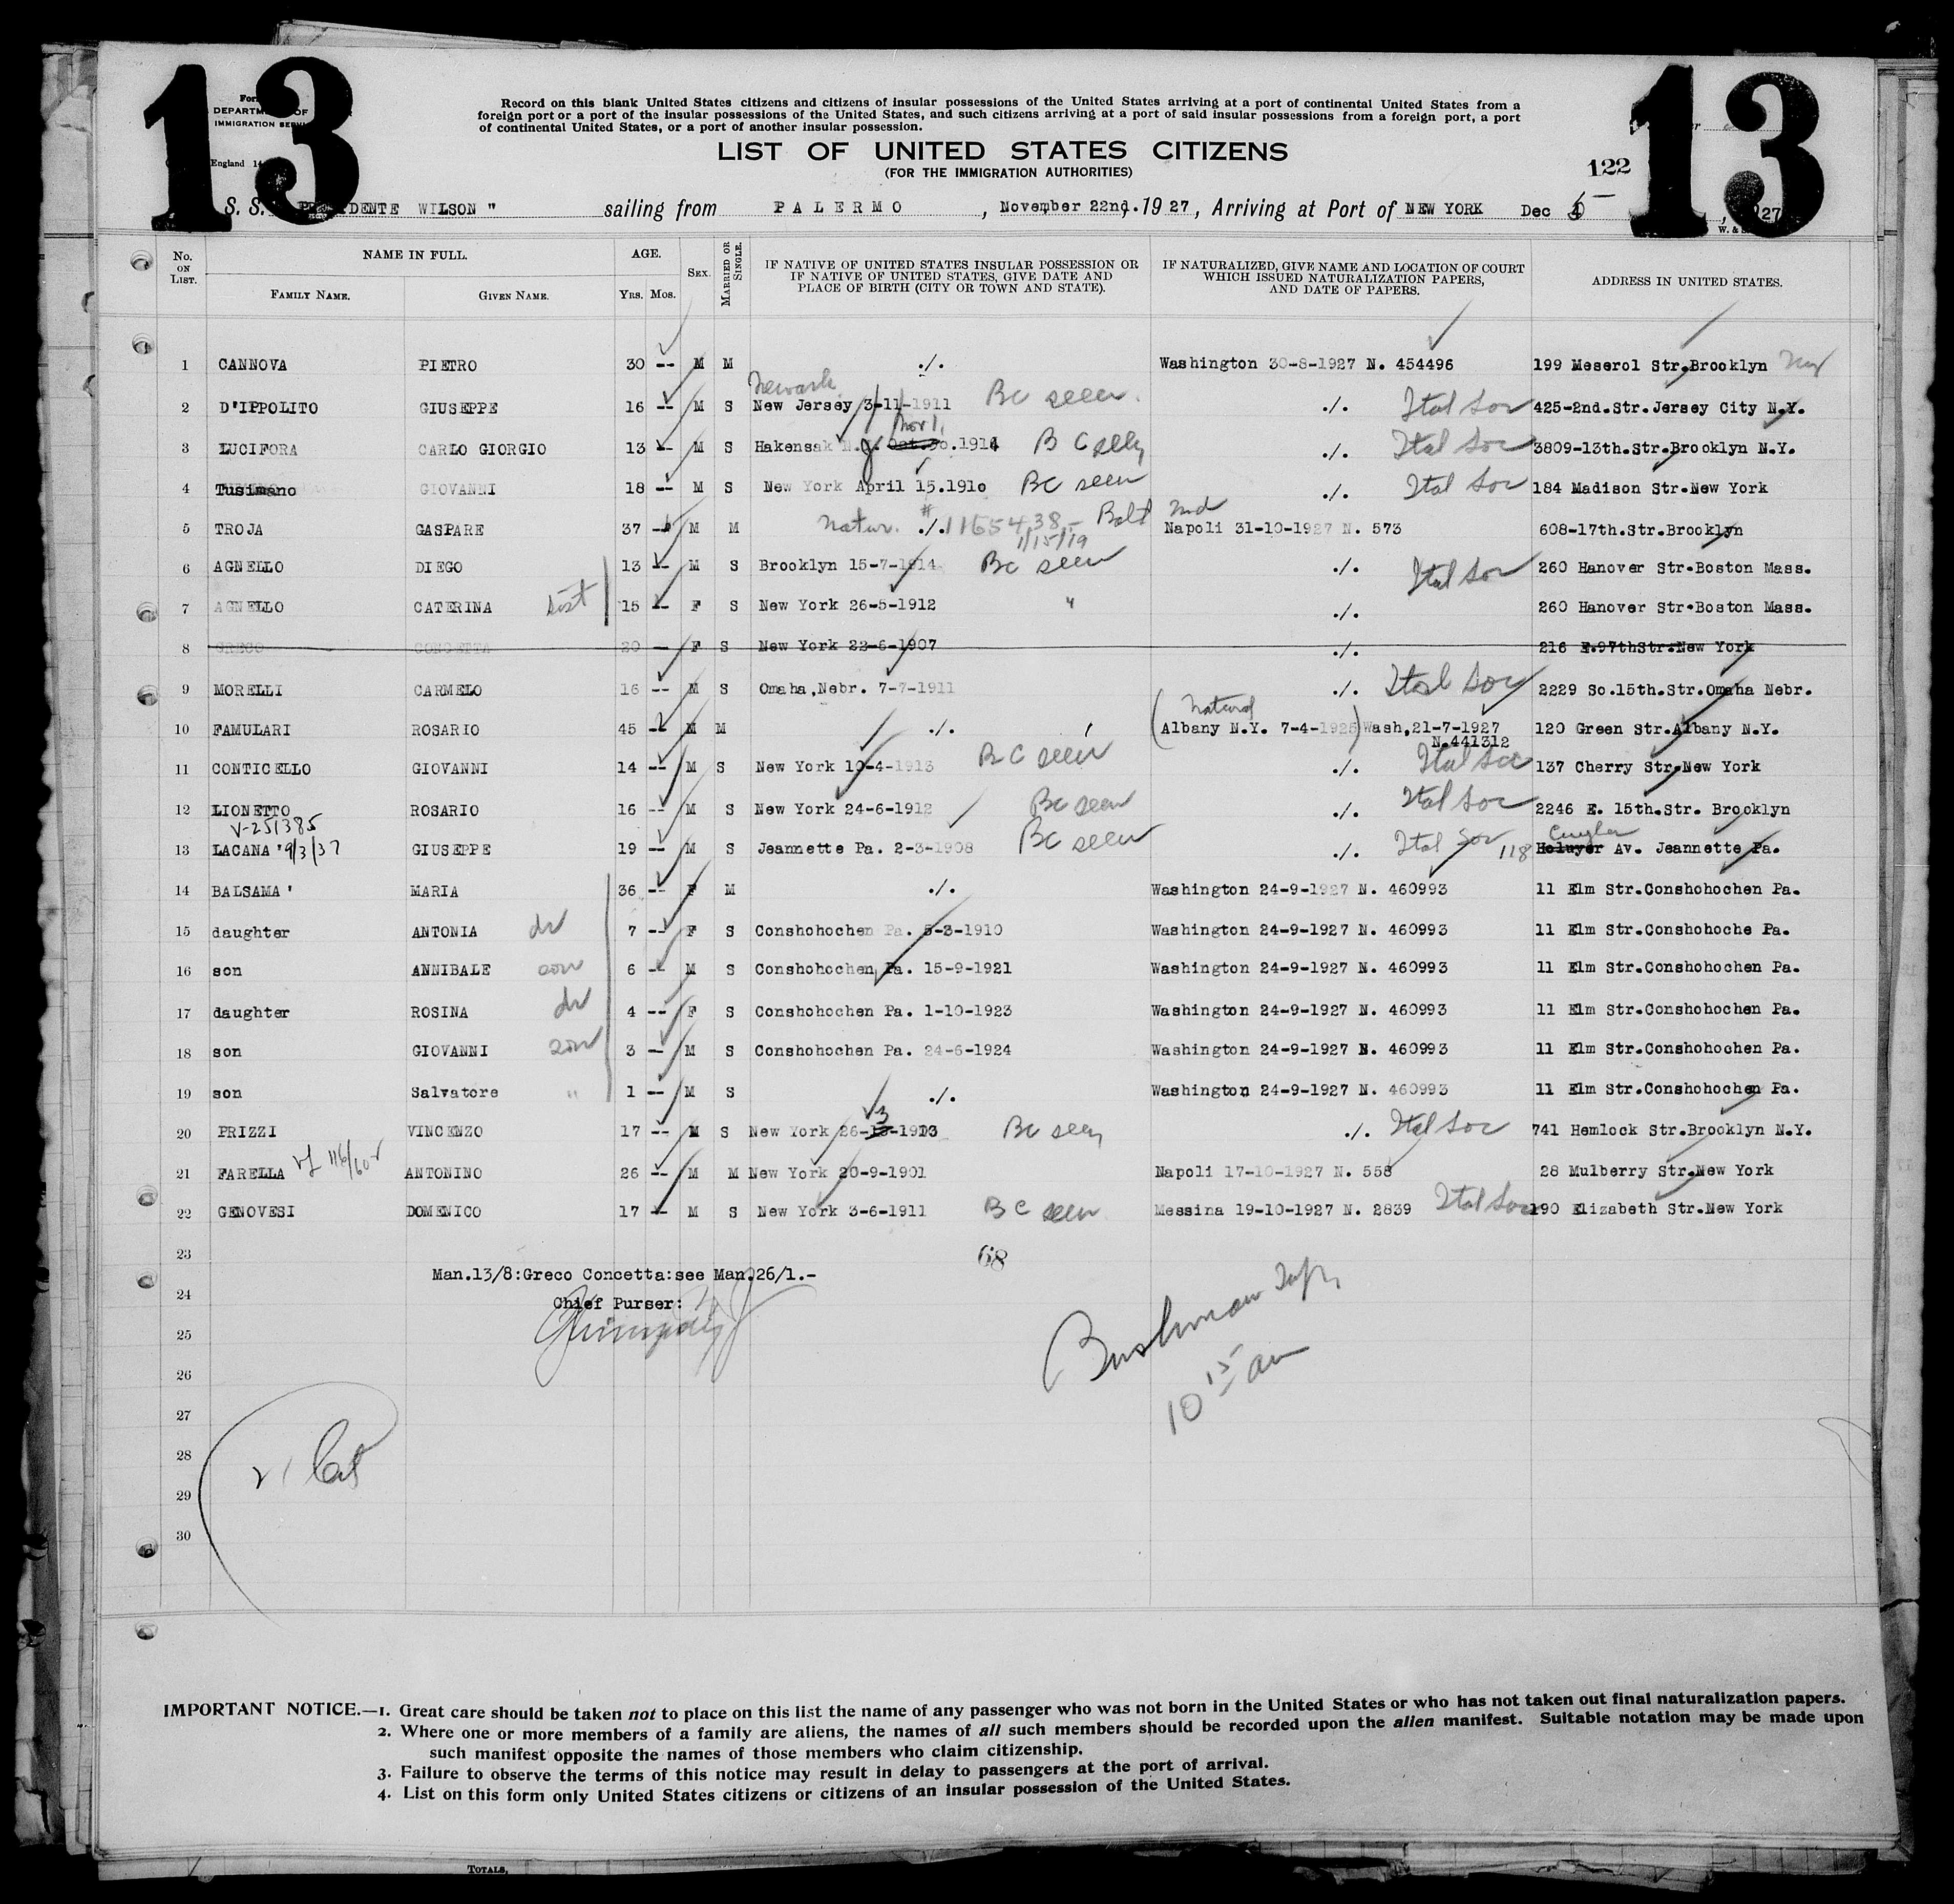 13
13
Record on this blank United States citizens and citizens of insular possessions of the United States arriving at a port of continental United States from a
foreign port or a port of the insular possessions of the United States, and such citizens arriving at a port of said insular possessions from a foreign port, a port
of continental United States, or a port of another insular possession.
LIST OF UNITED STATES CITIZENS
(FOR THE IMMIGRATION AUTHORITIES)
122
S. S. DENTE WILSON " sailing from PALERMO, November 22nd. 1927, Arriving at Port of NEW YORK Dec 5 27
No. ON LIST. NAME IN FULL. AGE. SEX. MARRIED OR SINGLE. IF NATIVE OF UNITED STATES INSULAR POSSESSION OR IF NATIVE OF UNITED STATES, GIVE DATE AND PLACE OF BIRTH (CITY OR TOWN AND STATE). IF NATURALIZED, GIVE NAME AND LOCATION OF COURT WHICH ISSUED NATURALIZATION PAPERS, AND DATE OF PAPERS. ADDRESS IN UNITED STATES.
FAMILY NAME. GIVEN NAME. YRS. MOS.
1 CANNOVA PIETRO 30 -- M M ./. Washington 30-8-1927 N. 454496 199 Meserol Str.Brooklyn NY
Newark
2 D'IPPOLITO GIUSEPPE 16 -- M S New Jersey 3-11-1911 BC seen ./. Ital Sov 425-2nd.Str.Jersey City N.Y.
Nov 1,
3 LUCIFORA CARLO GIORGIO 13 -- M S Hakensak N.J. Oct.30.1914 BC seen ./. Ital Sov 3809-13th.Str.Brooklyn N.Y.
4 Tusimano GIOVANNI 18 -- M S New York April 15.1910 BC seen ./. Ital Sov 184 Madison Str.New York
5 TROJA GASPARE 37 -- M M Natur. ./. # 1165438 - Balt Md Napoli 31-10-1927 N. 573 608-17th.Str.Brooklyn
1/15/19
6 AGNELLO DIEGO 13 -- M S Brooklyn 15-7-1914 BC seen ./. Ital Sov 260 Hanover Str.Boston Mass.
7 AGNELLO CATERINA Sist 15 -- F S New York 26-5-1912 " ./. 260 Hanover Str.Boston Mass.
8 GRECO CONCETTA 20 -- F S New York 22-6-1907 ./. 216 E.97thStr.New York
9 MORELLI CARMELO 16 -- M S Omaha,Nebr. 7-7-1911 ./. Ital Sov 2229 So.15th.Str.Omaha Nebr.
Natural
10 FAMULARI ROSARIO 45 -- M M ./. (Albany N.Y. 7-4-1925) Wash,21-7-1927 120 Green Str.Albany N.Y.
N.441312
11 CONTICELLO GIOVANNI 14 -- M S New York 10-4-1913 BC seen ./. Ital Soc 137 Cherry Str.New York
12 LIONETTO ROSARIO 16 -- M S New York 24-6-1912 BC seen ./. Ital Sov 2246 E. 15th.Str. Brooklyn
V-251385
Cuyler
13 LACANA '9/3/37 GIUSEPPE 19 -- M S Jeannette Pa. 2-3-1908 BC seen ./. Ital Sov 118 Holuyer Av. Jeannette Pa.
14 BALSAMA' MARIA 36 -- F M ./. Washington 24-9-1927 N. 460993 11 Elm Str.Conshohochen Pa.
15 daughter ANTONIA dr 7 -- F S Conshohochen Pa. 5-3-1910 Washington 24-9-1927 N. 460993 11 Elm Str.Conshohoche Pa.
16 son ANNIBALE son 6 -- M S Conshohochen Pa. 15-9-1921 Washington 24-9-1927 N. 460993 11 Elm Str.Conshohochen Pa.
17 daughter ROSINA dr 4 -- F S Conshohochen Pa. 1-10-1923 Washington 24-9-1927 N. 460993 11 Elm Str.Conshohochen Pa.
18 son GIOVANNI son 3 -- M S Conshohochen Pa. 24-6-1924 Washington 24-9-1927 N. 460993 11 Elm Str.Conshohochen Pa.
19 son Salvatore " 1 -- M S ./. Washington 24-9-1927 N. 460993 11 Elm Str.Conshohochen Pa.
20 PRIZZI VINCENZO 17 -- M S New York 26-3-1910 BC seen ./. Ital Soc 741 Hemlock Str.Brooklyn N.Y.
21 FARELLA ANTONINO 26 -- M M New York 20-9-1901 Napoli 17-10-1927 N. 558 28 Mulberry Str.New York
22 GENOVESI DOMENICO 17 -- M S New York 3-6-1911 BC seen Messina 19-10-1927 N. 2839 Ital Sov 190 Elizabeth Str.New York
23 68
Man.13/8:Greco Concetta:see Man.26/1.-
24 Chief Purser:
25
Bushman Insp,
10 15 am
26
27
28
29
30
IMPORTANT NOTICE.—1. Great care should be taken not to place on this list the name of any passenger who was not born in the United States or who has not taken out final naturalization papers.
2. Where one or more members of a family are aliens, the names of all such members should be recorded upon the alien manifest. Suitable notation may be made upon
such manifest opposite the names of those members who claim citizenship.
3. Failure to observe the terms of this notice may result in delay to passengers at the port of arrival.
4. List on this form only United States citizens or citizens of an insular possession of the United States.
TOTALS,